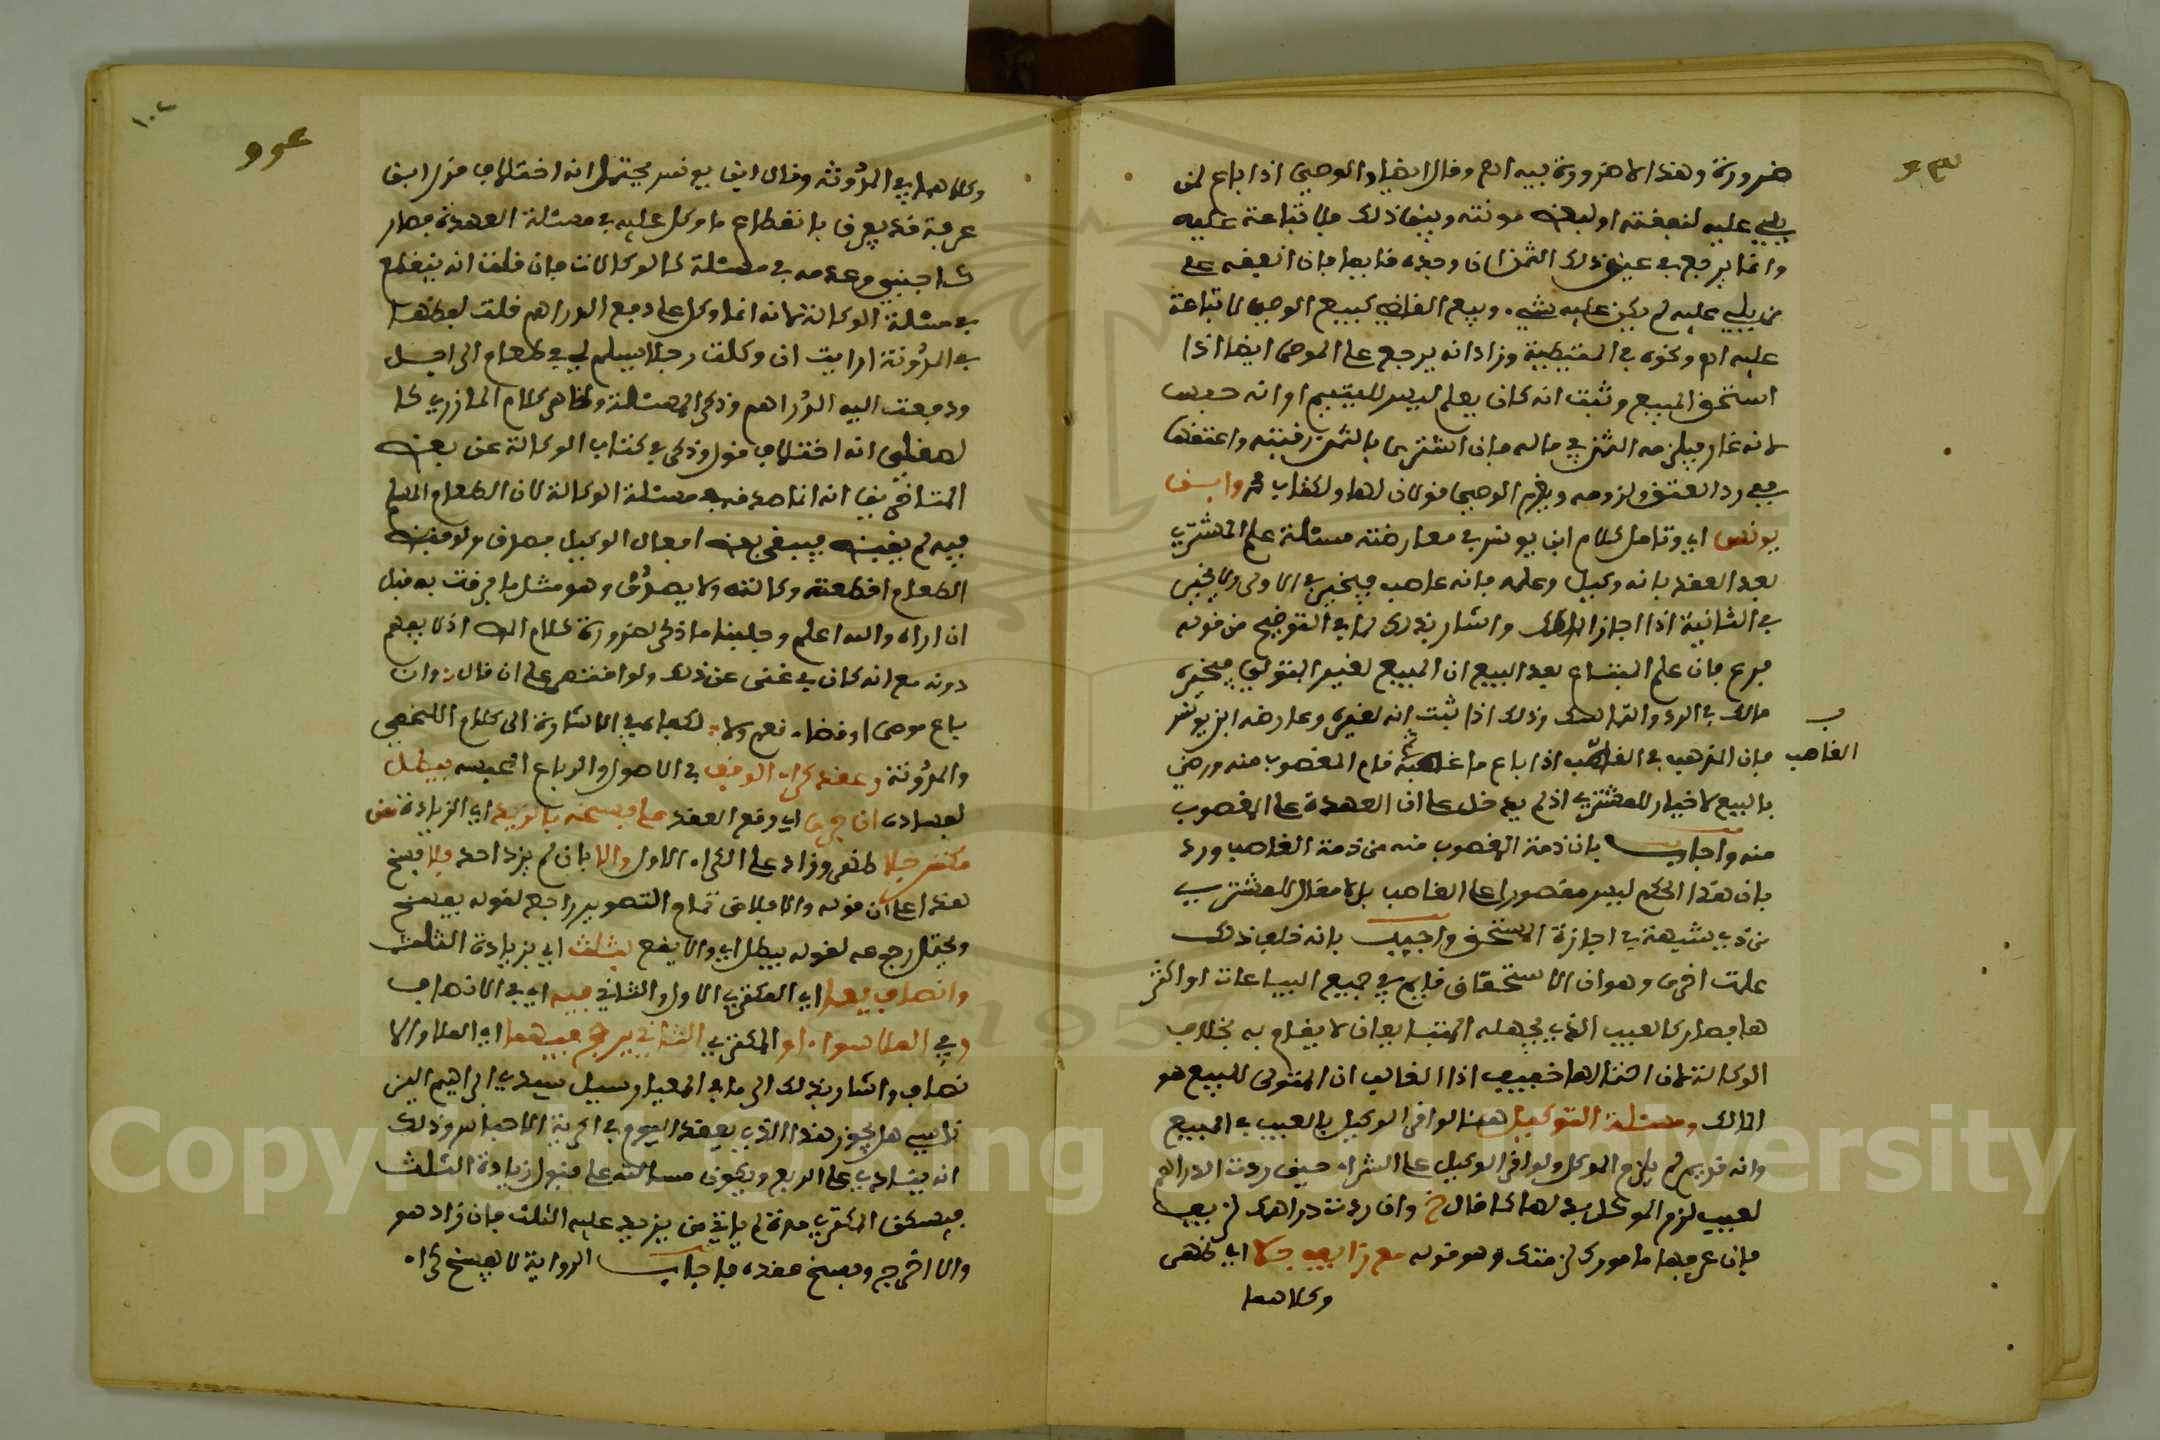 ضرورة وهذا لا ضرورة فيه اه وقال ايضا والوصي اذا باع لمن
يلي عليه لنفقته او لبعض مونته وبين ذلك فلا تباعة عليه
وانما يرجع في عين ذلك الثمن ان وجده قائما فان انفقه على
من يلي عليه لم يكن عليه شيء. وبيع القاضي كبيع الوصي لا تباعة
عليه اه ونحوه في المتيطية وزاد انه يرجع على الموصى ايضا اذا
استحق المبيع وثبت انه كان يعلم ليس لليتيم او انه حبس
لانه غار فيلزمه الثمن في ماله فان اشترى بالثمن رقبته واعتقها
ففي رد العتق ولزومه ويغرم الوصي قولان لها ولكتاب محمد وابن
يونس اي وتامل كلام ابن يونس في معارضته مسئلة علم المشتري
بعد العقد بانه وكيل وعلمه بانه غاصب فيخير في الاولى ولا يخير
في الثانية اذا اجاز المالك واشار بذلك لما في التوضيح من قوله
فرع فان علم المبتاع بعد البيع ان المبيع لغير المتولي فيخيره
مالك في الرد والتماسك وذلك اذا ثبت انه لغيره وعارضه ابن يونس
فان المذهب في الغاصب اذا باع ما غصبه ثم قام المغصوب منه ورضي
الغاصب
بالبيع لا خيار للمشتري اذ لم يدخل على ان العهدة على المغصوب
منه واجاب بان ذمة المغصوب منه من ذمة الغاصب ورد
بان هذا الحكم ليس مقصورا على الغاصب بل لا مقال للمشتري
من ذي شبهة في اجازة المستحق واجيب بانه خلف ذلك
علت اخرى وهو ان الاستحقاق قايم في جميع البياعات او اكثر
ها فصار كالعيب الذي يجهله المتبايعان لا يقام به بخلاف
الوكالة لان احتمالها ضعيف اذ الغالب ان المتولى للبيع هو
المالك ومسئلة التوكيل هنا لو اقر الوكيل بالعيب في المبيع
وانه قديم لم يلزم الموكل ولو اقر الوكيل على الشراء حين ردت الدراهم
لعيب لزم الموكل بدلها كما قال خ وان ردت دراهمك لزيف
فان عرفها مامورك لزمتك وهو قوله مع زايف جلا اي ظهر
وكلاهما
وكلاهما في المدونة وقال ابن يونس يحتمل انه اختلاف قول ابن
عرفة قد يفرق بانقطاع ما وكل عليه في مسئلة العهدة فصار
كاجنبي وعدمه في مسئلة الوكالات فان قلت انه ينقطع
في مسئلة الوكالة لانه انما وكل على دفع الدراهم قلت لفظها
في المدونة ارايت ان وكلت رجلا يسلم لي في طعام الى اجل
ودفعت اليه الدراهم وذكر المسئلة وظاهر كلام المازري كا
لصقلي انه اختلاف قول وذكر في كتاب الوكالة عن بعض
المتاخرين انه انما صدقه في مسئلة الوكالة لان الطعام المسلم
فيه لم يقبضه فيبقى بعض افعال الوكيل فصدق ولو قبض
الطعام انقطعت وكالته ولا يصدق وهو مثل ما فرقت به قبل
ان اراه والله اعلم وجلبنا ما ذكر لضرورة كلام الله اذ لا يفهم
دونه مع انه كان في غنى عن ذلك ولو اقتصر على ان قال وان
باع موصى او قضاء نعم ولا لكفاه في الاشارة الى كلام اللخمي
والمدونة وعقد كراء الوقف في الاصول والرباع المحبسة يبطل
لفساده ان جرى اي وقع العقد على فسخه بالزيد اي الزيادة من
مكتر جلا ظهر وزاد على الكراء الاول والا بان لم يزد احد فلا فسخ
هذا على ان قوله والا فلا من تمام التصوير راجع لقوله بفسخ
ويحتمل رجوعه لقوله يبطل اي والا يقع بثلث اي بزيادة الثلث
وانصاف بعد اي المكتري الاول والثاني فيه اي في الانصاف
وفي الملا سواء او المكتري الثاني يرجح فيهما اي الملا والا
نصاف واشار بذلك الى ما في المعيار وسيل سيدي ابراهيم اليز
ناسي هل يجوز هذا الذي يعقد اليوم في اكرية الاحباس وذلك
انه ينادي على الربع ويكون مسالته على قبول زيادة الثلث
فيسكن المكتري مدة ثم ياتي من يزيد عليه الثلث فان زاد هو
والا اخرج وفسخ عقده فاجاب الرواية لا يفسخ كراء